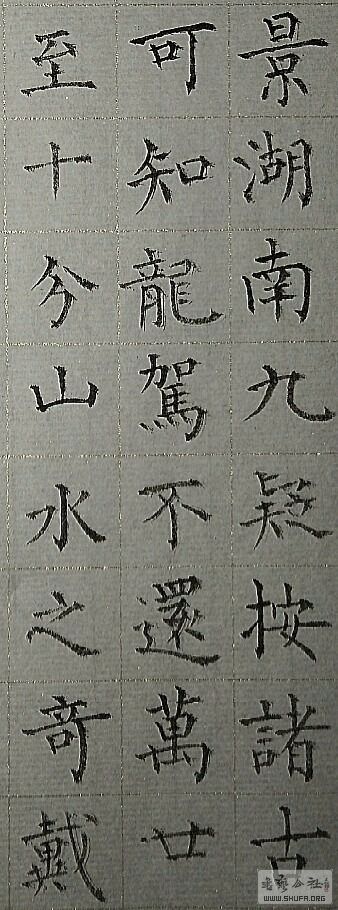 景湖南九疑按諸古
可知龍駕不還萬廿
至十分山水之奇戴
WWW.SHUFA.ORG